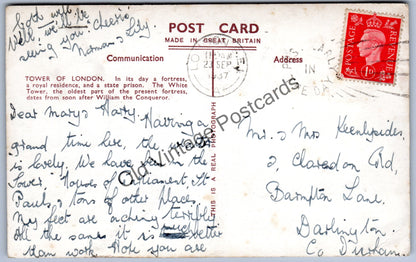 both well
Well, we'll be
seeing you, Cheerio
Norman & Lily
POST CARD
MADE IN GREAT BRITAIN
Communication
Address
TOWER OF LONDON. In its day a fortress,
a royal residence, and a state prison. The White
Tower, the oldest part of the present fortress,
dates from soon after William the Conqueror.
SEP
1937
POSTAGE
REVENUE
1D
IN
Dear Mary & Harry, Having a
grand time here, the
is lovely. We have been in the
Tower Houses of Parliament St
Pauls & tons of other places
My feet are aching terribly
All the same it is much better
than work. Hope you are
Mr. & Mrs Keenlysides,
2, Claredon Rd,
Barmpton Lane,
Darlington.
Co Durham.
Old Vintage Postcards